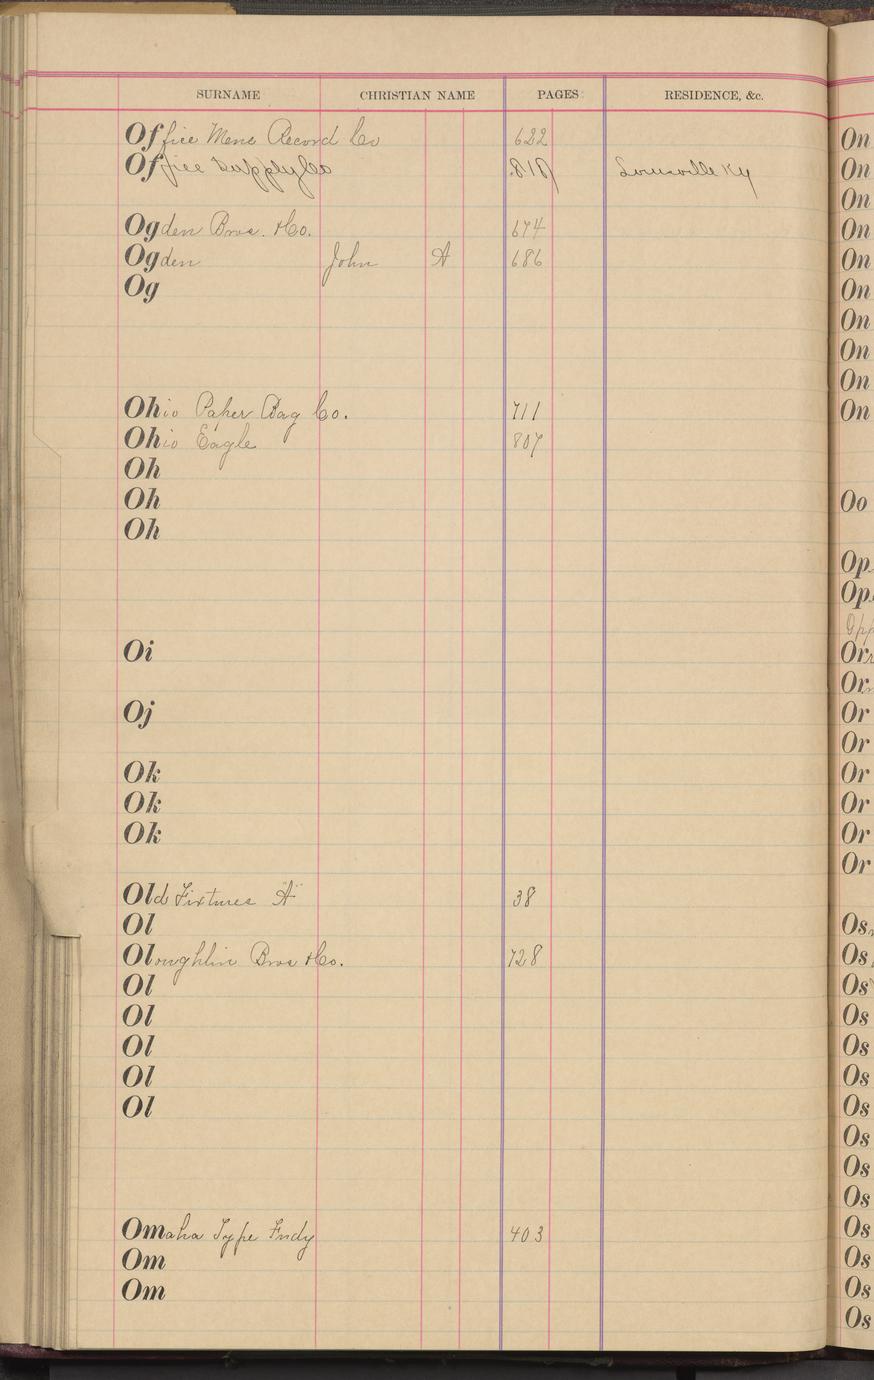 SURNAME CHRISTIAN NAME PAGES RESIDENCE, &c.
Office Mens Record Co 622
Office Supply Co 818 Louisville Ky
Ogden Bros. & Co. 674
Ogden John A 686
Og
Ohio Paper Bag Co. 711
Ohio Eagle 807
Oh
Oh
Oh
Oi
Oj
Ok
Ok
Ok
Old Fixtures "A" 38
Ol
Oloughlin Bros & Co. 728
Ol
Ol
Ol
Ol
Ol
Omaha Type Fndy 403
Om
Om
On
On
On
On
On
On
On
On
On
On
Oo
Op
Op
Opp
Orr
Or
Or
Or
Or
Or
Or
Or
Os
Os
Os
Os
Os
Os
Os
Os
Os
Os
Os
Os
Os
Os